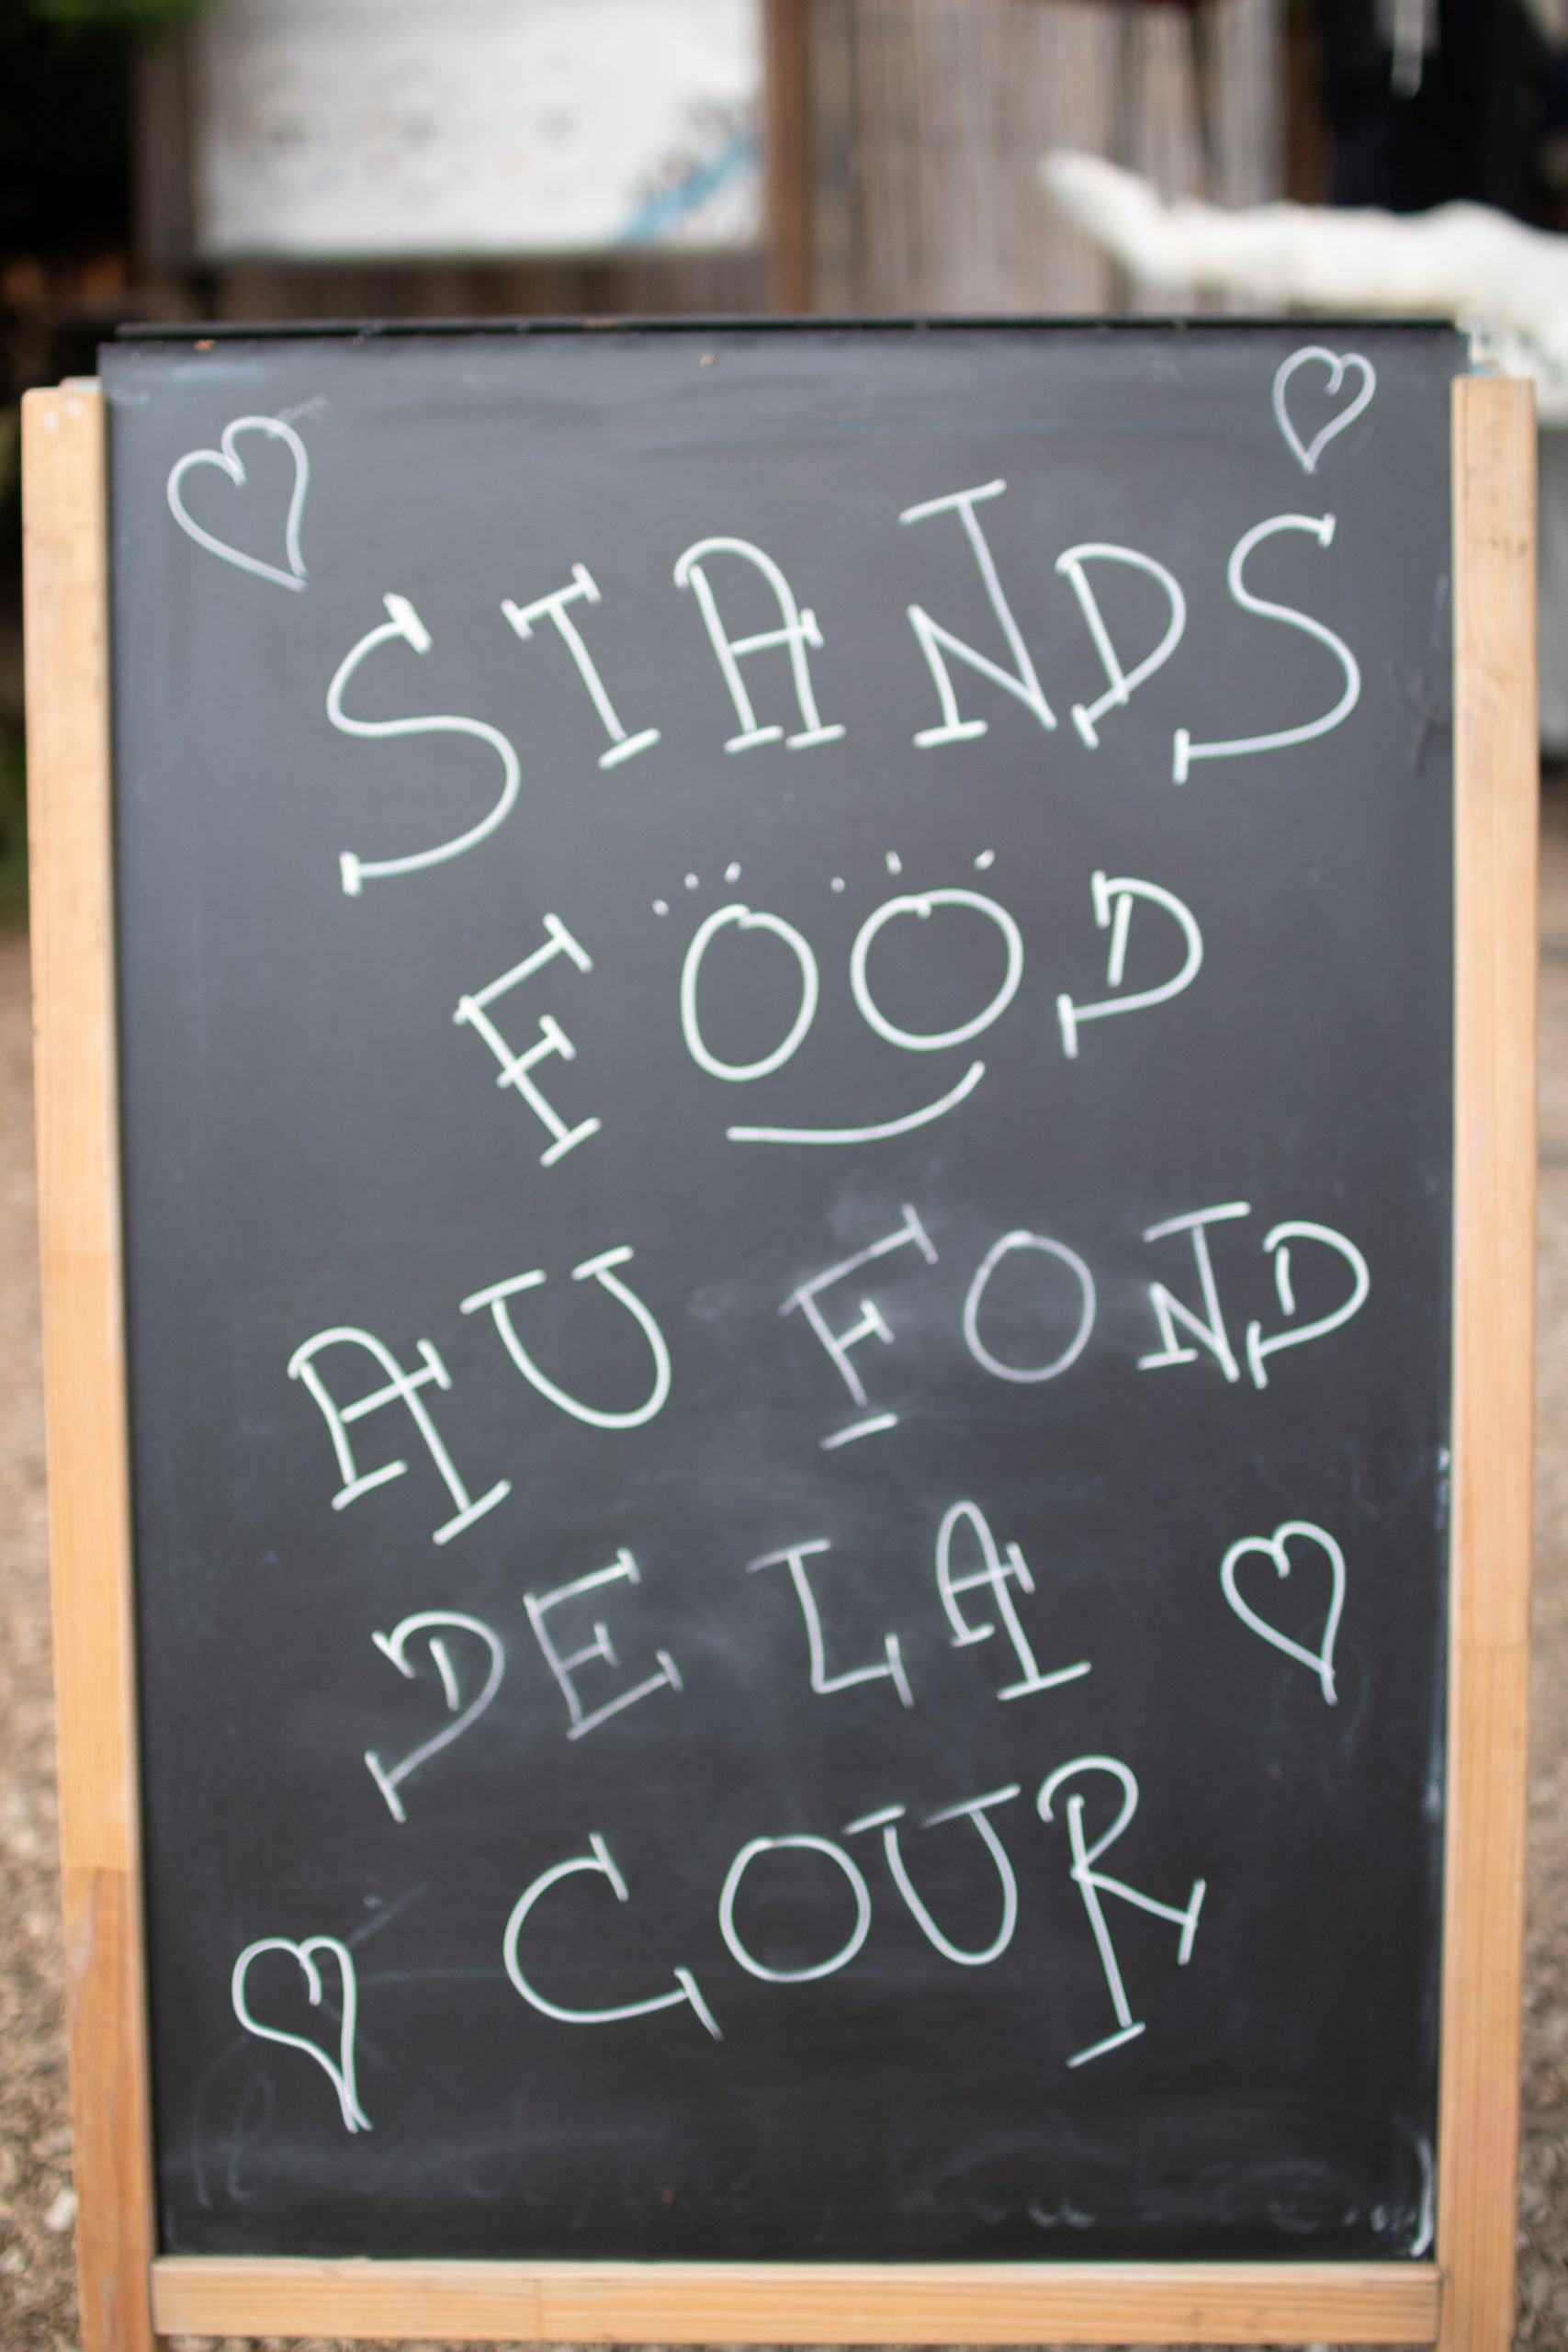 STANDS
FOOD
AU FOND
DE LA
COUR